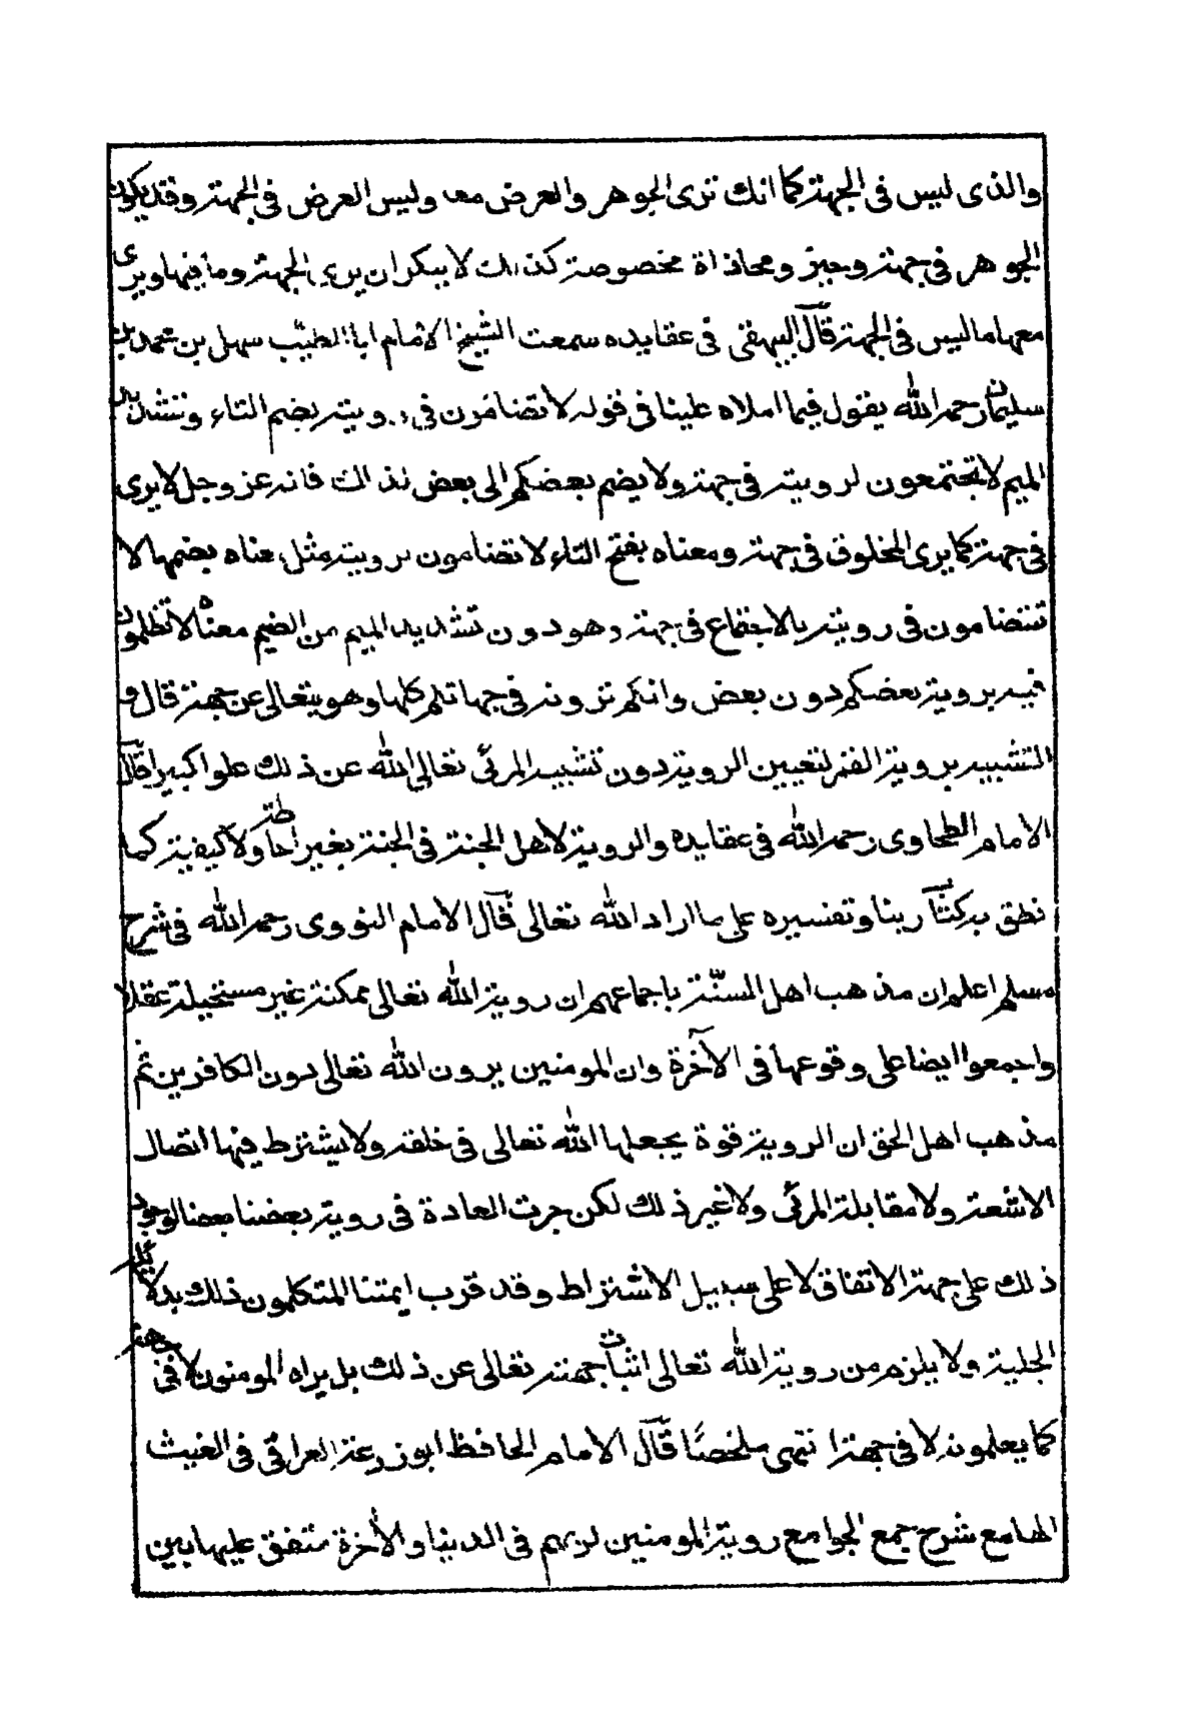 والذى ليس فى الجهة كما انك ترى الجوهر والعرض معا وليس العرض فى الجهة وقد يكون
الجوهر فى جهة وحيز ومحاذاة مخصوصة كذلك لا ينكر ان يرى الجهة وما فيها ويرى
معها ما ليس فى الجهة قال البيهقى فى عقايده سمعت الشيخ الامام ابا الطيب سهل بن محمد بن
سليمان رحمه الله يقول فيما املاه علينا فى قوله لا تضامون فى رويته بضم التاء وتشديد
الميم لا تجتمعون لرويته فى جهة ولا يضم بعضكم الى بعض لذالك فانه عز وجل لا يرى
فى جهة كما يرى المخلوق فى جهة ومعناه بفتح التاء لا تضامون لرويته مثل معناه بضمها لا
تتضامون فى رويته بالاجتماع فى جهة وهو دون تشديد الميم من الضيم معناه لا تظلمون
فيه برويته بعضكم دون بعض وانكم ترونه فى جهاتكم كلها وهو يتعالى عن جهة قال و
التشبيه بروية القمر لتعيين الروية دون تشبيه المرئى تعالى الله عن ذلك علوا كبيرا قال
الامام الطحاوى رحمه الله فى عقايده والروية لاهل الجنة فى الجنة بغير احاطة ولا كيفية كما
نطق به كتاب ربنا وتفسيره على ما اراد الله تعالى قال الامام النووى رحمه الله فى شرح
مسلم اعلم ان مذهب اهل السنّة باجماعهم ان روية الله تعالى ممكنة غير مستحيلة عقلا
واجمعوا ايضا على وقوعها فى الآخرة وان المومنين يرون الله تعالى دون الكافرين ثم
مذهب اهل الحق ان الروية قوة يجعلها الله تعالى فى خلقه ولا يشترط فيها اتصال
الاشعة ولا مقابلة المرئى ولا غير ذلك لكن جرت العادة فى روية بعضنا بعضا لوجود
ذلك على جهة الاتفاق لا على سبيل الاشتراط وقد قرب ايمتنا المتكلمون ذلك بدلائله
الجلية ولا يلزم من روية الله تعالى اثبات جهة تعالى عن ذلك بل يراه المومنون لا فى جهة
كما يعلمونه لا فى جهة انتهى ملخصًا قال الامام الحافظ ابو زرعة العراقى فى الغيث
الهامع شرح جمع الجوامع روية المومنين لربهم فى الدنيا والآخرة متفق عليها بين